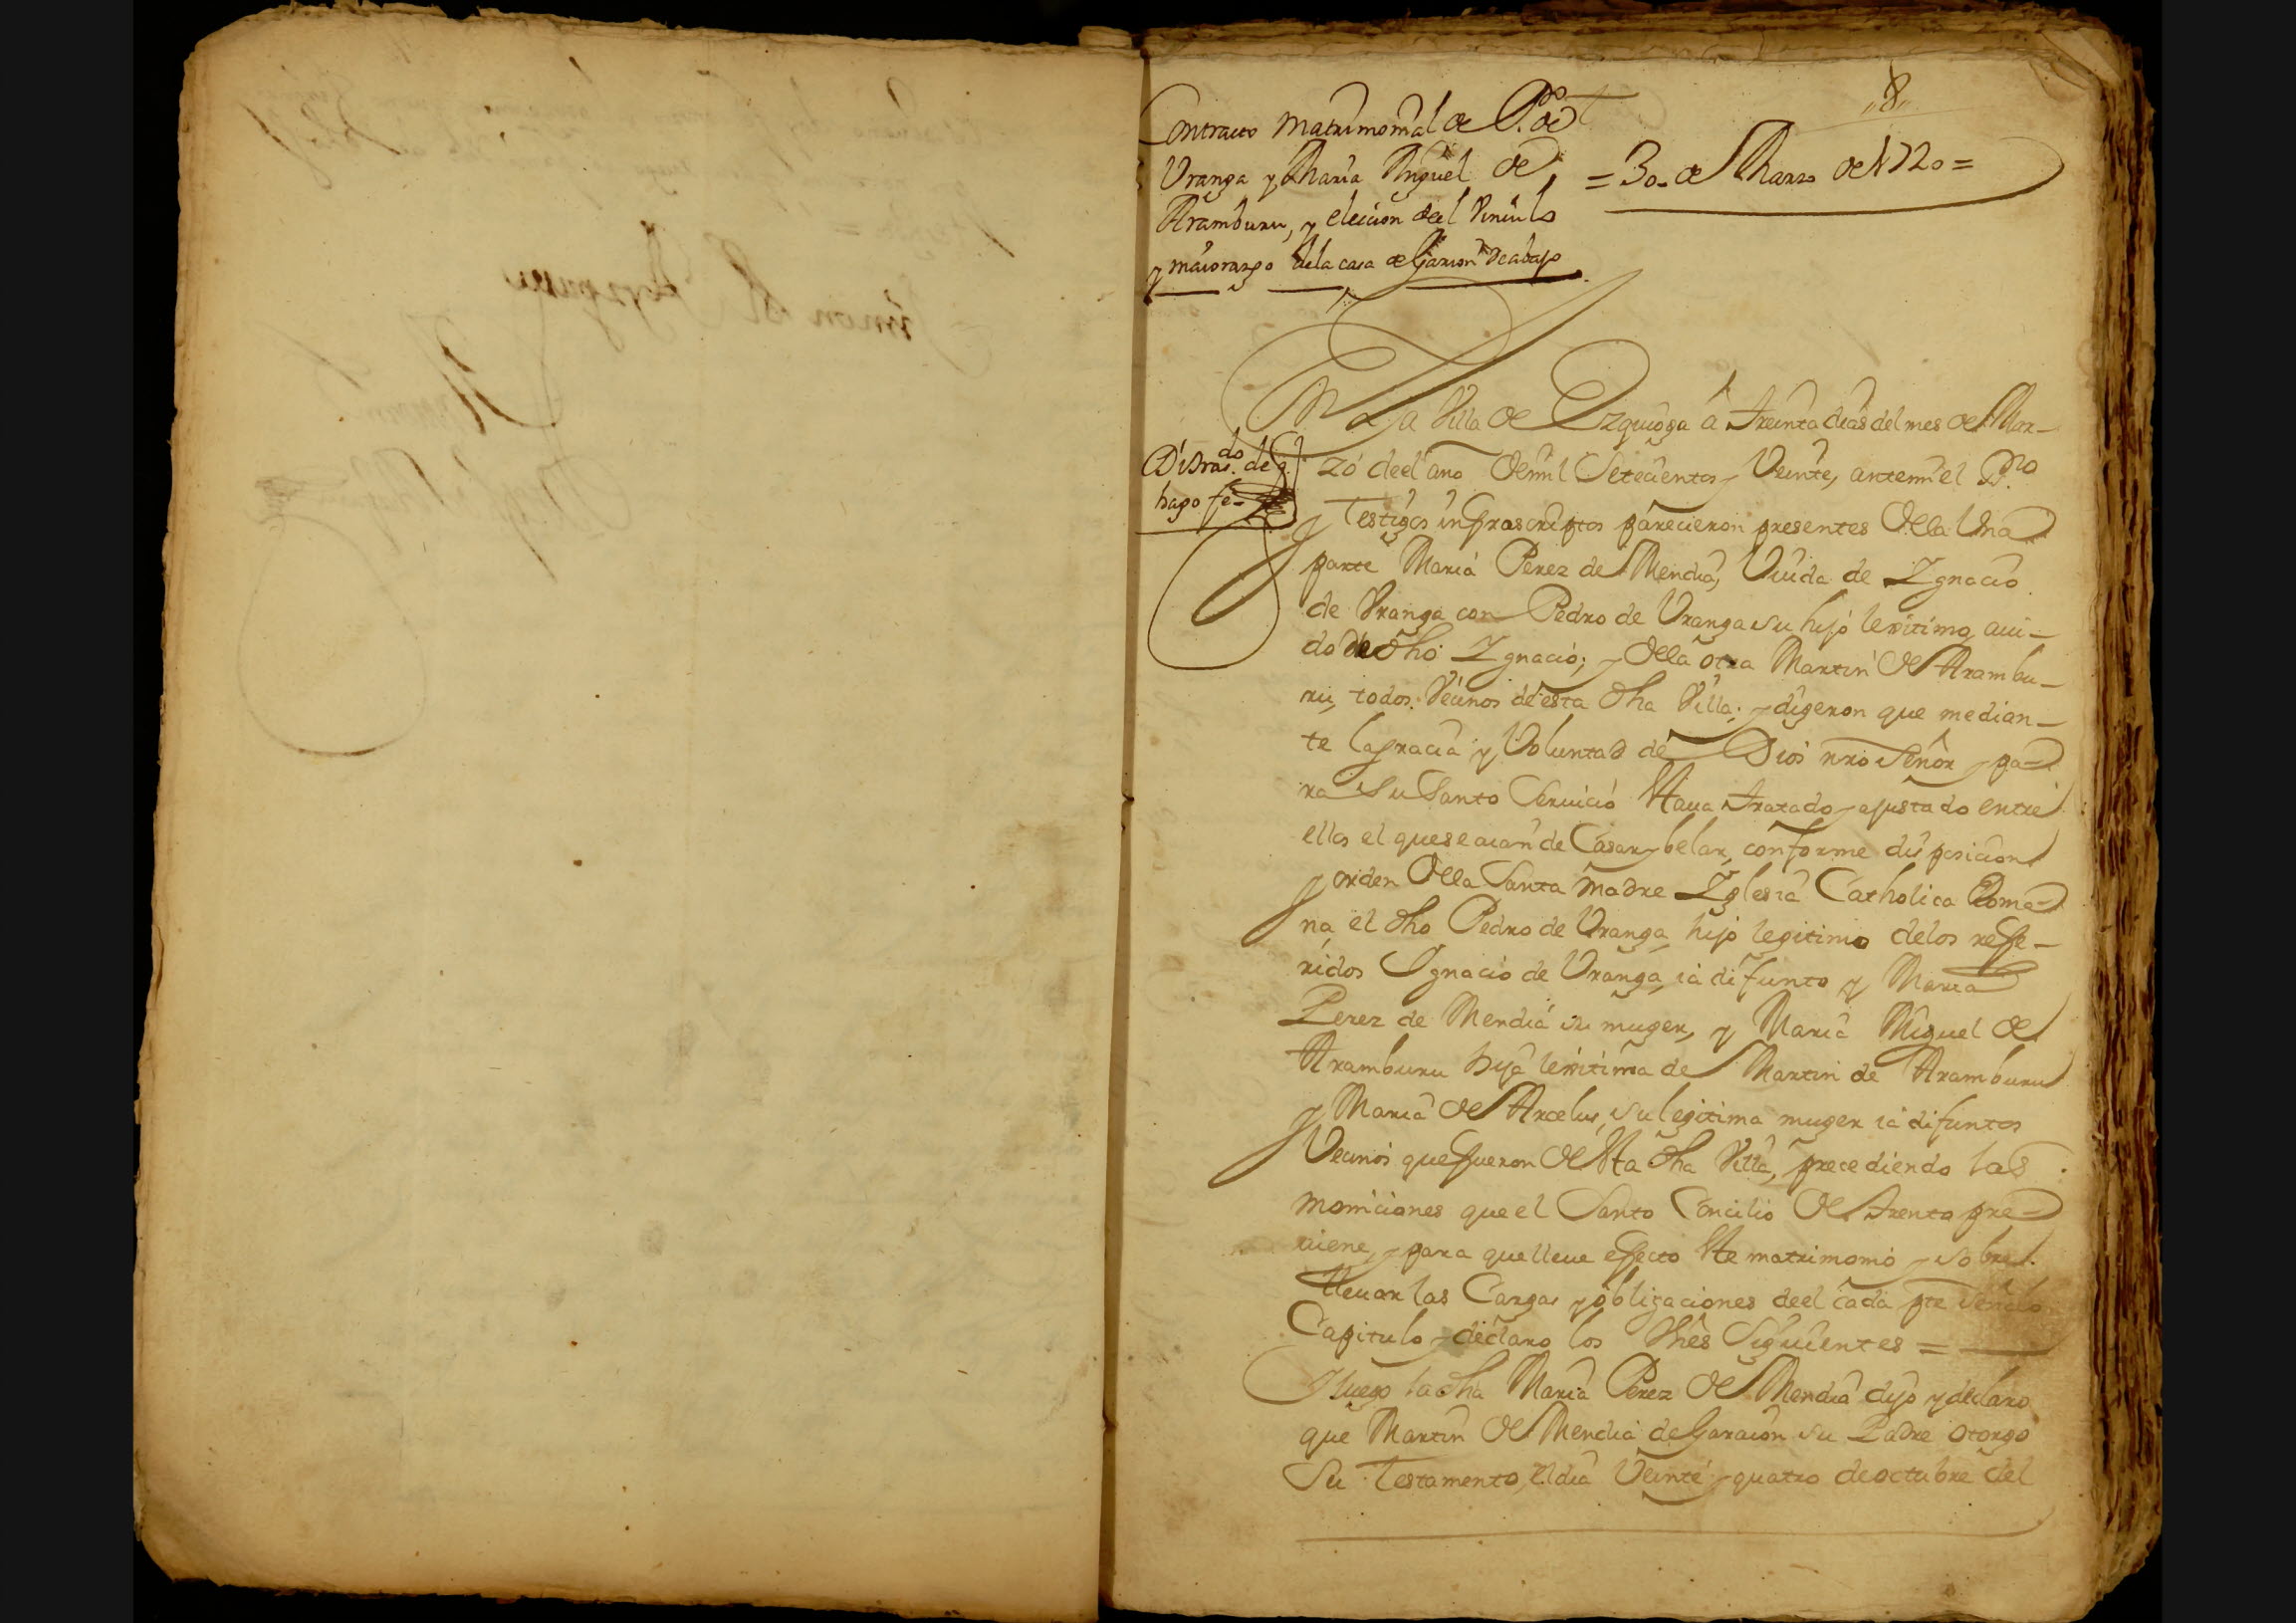 8
Contracto matrimonial de P.º de
Vranga y Maria Miguel de
Aramburu, y eleicion deel Vinculo
y maiorazgo dela casa de Garaion de abajo
= 30 - de Marzo de 1720 =
En La Villa de Ezquioga â treinta dias del mes de Mar-
Di tras.do de q.
hago fe -
zo deel año de mil Setecientos y Veinte, ante mi el Ss.no
y Testigos infrascriptos parecieron presentes de la Una
parte Maria Perez de Mendia, Viuda de Ignacio
de Vranga con Pedro de Vranga su hijo lexitimo, aui-
do de dho Ignacio; y de la otra Martin de Arambu-
ru, todos Vecinos de esta dha Villa; y digeron que median-
te la gracia y Voluntad de Dios nro Señor y pa-
ra Su Santo Seruicio Haua tratado y ajustado entre
ellos el que se aian de Casar y belar, conforme disposicion
y orden de la Santa madre Iglesia Catholica Roma-
na, el dho Pedro de Vranga, hijo legitimo delos refe-
ridos Ignacio de Vranga, ia difunto y Maria
Perez de Mendia su muger, y Maria Miguel de
Aramburu hija lexitima de Martin de Aramburu
y Maria de Arcelus, su legitima muger ia difuntos
Vecinos que fueron de Sta dha Villa, precediendo las
moniciones que el Santo Concilio de Trento pre-
uiene, y para que lleue efecto Ste matrimonio y sobre
lleuar las Cargas y obligaciones deel cada pte
Capitulo y declaro los Vnes Siguientes =
Y luego la dha Maria Perez de Mendia dijo y declaro
que Martin de Mendia de Garaion su Padre otorgo
Su Testamento, el dia Veinte y quatro de octubre del